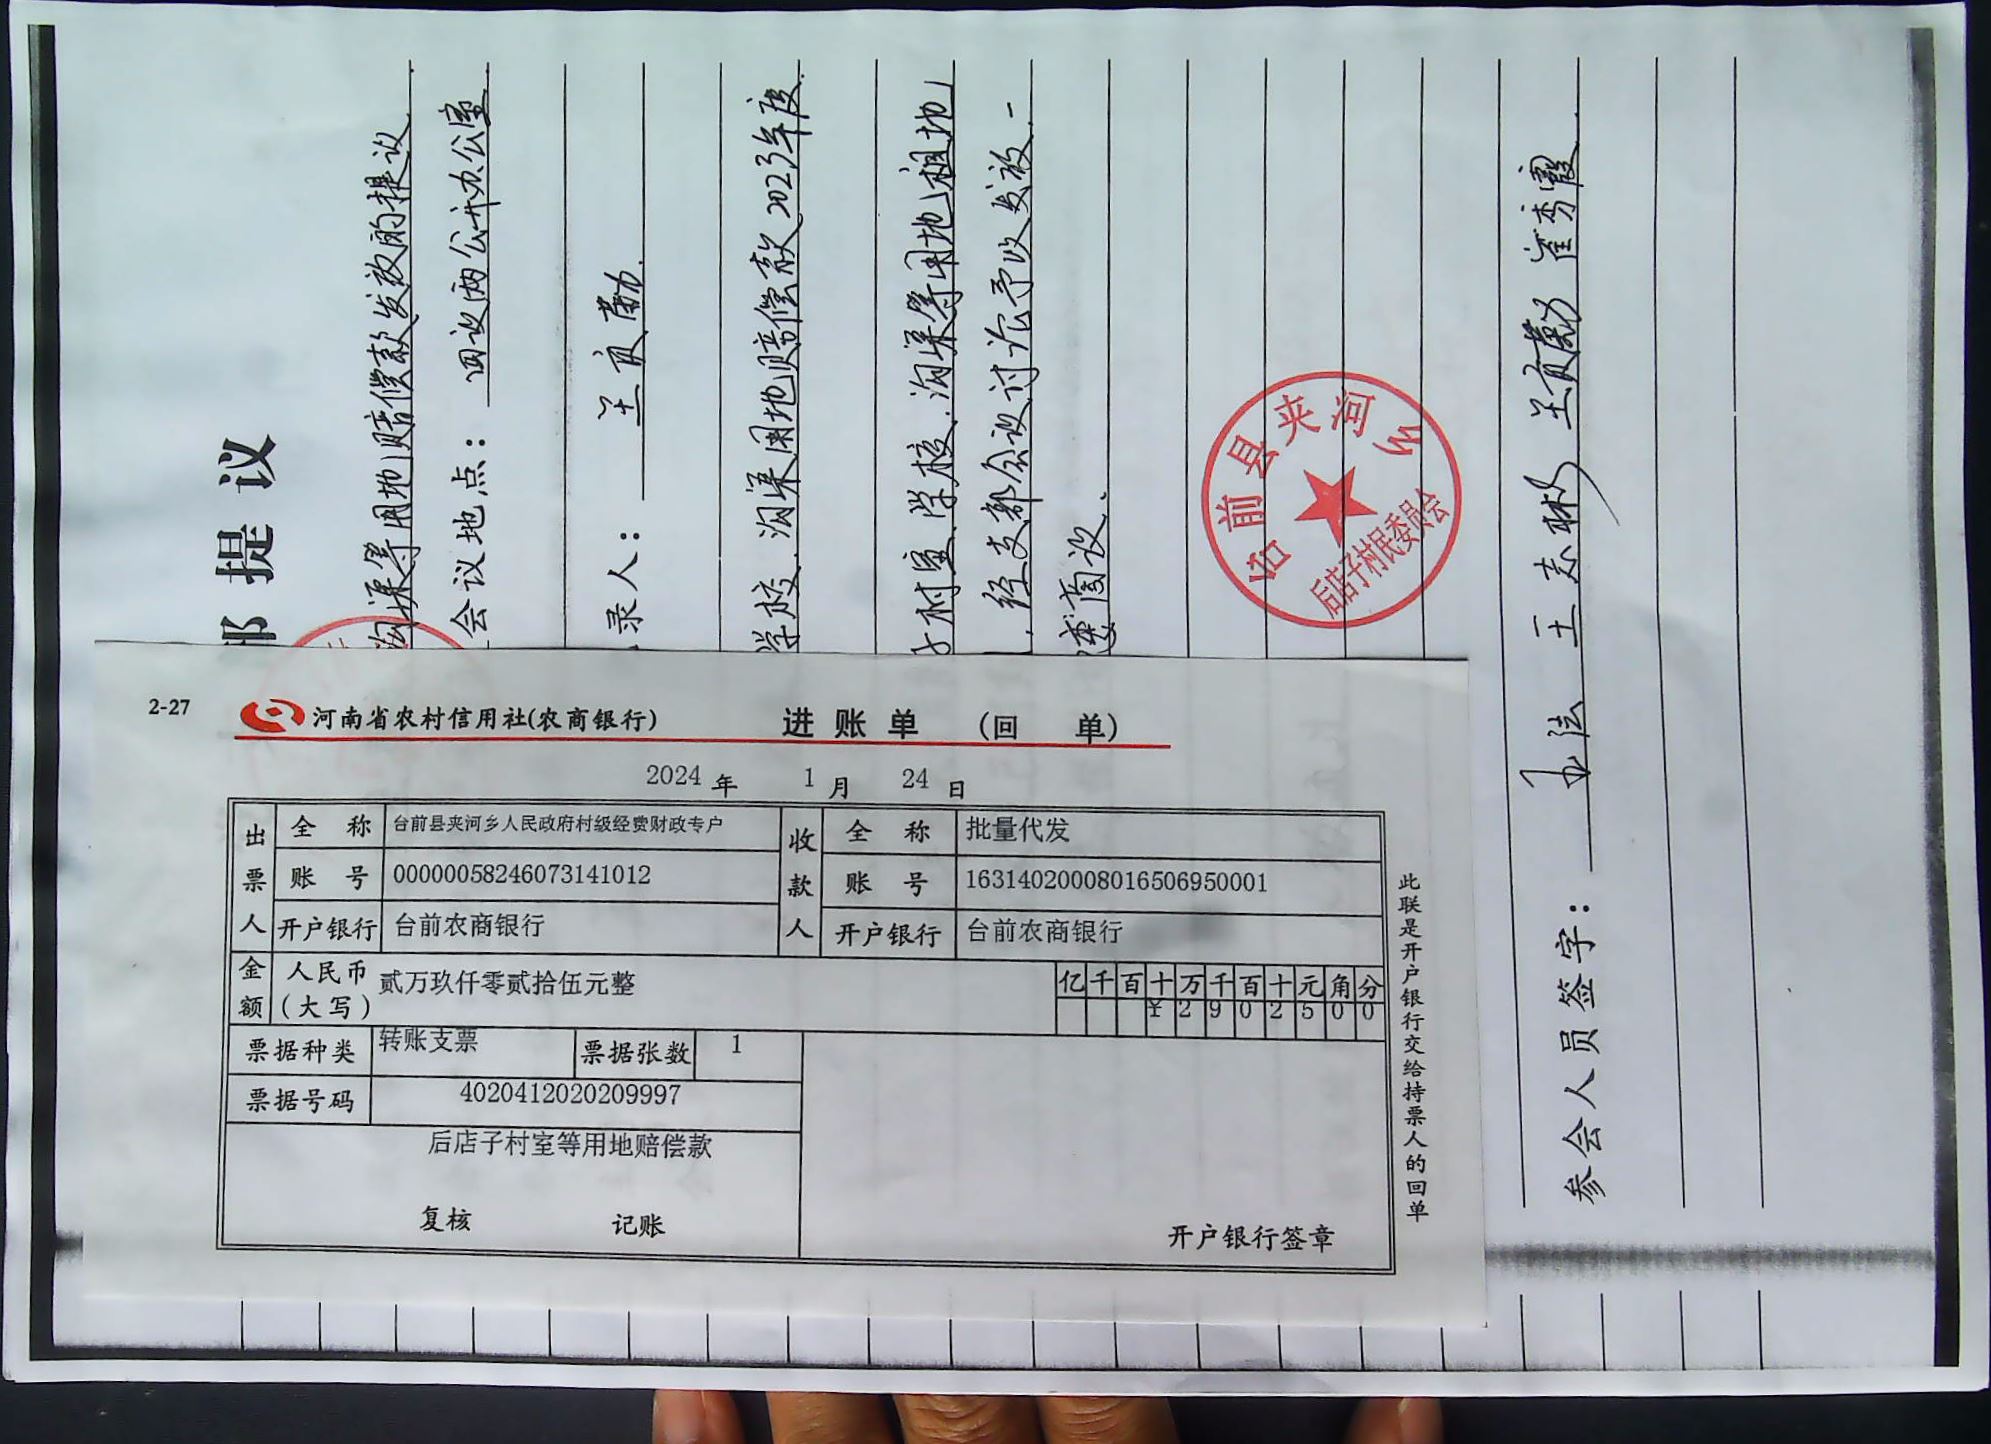 提议
沟渠等用地赔偿款发放的提议.
会议地点：四议两公开办公室
录人：
学校、沟渠用地赔偿款2023年度
村室、学校、沟渠等用地租地
经支部会议讨论予以发放.
台前县夹河乡
后店子村民委员会
参会人员签字：
2-27
河南省农村信用社(农商银行)
进账单 (回 单)
2024 年 1 月 24 日
出票人 全 称 台前县夹河乡人民政府村级经费财政专户 收款人 全 称 批量代发
账 号 00000058246073141012 账 号 16314020008016506950001
开户银行 台前农商银行 开户银行 台前农商银行
金额 人民币(大写) 贰万玖仟零贰拾伍元整 亿千百十万千百十元角分
¥2902500
票据种类 转账支票 票据张数 1
票据号码 4020412020209997
后店子村室等用地赔偿款
复核 记账
开户银行签章
此联是开户银行交给持票人的回单